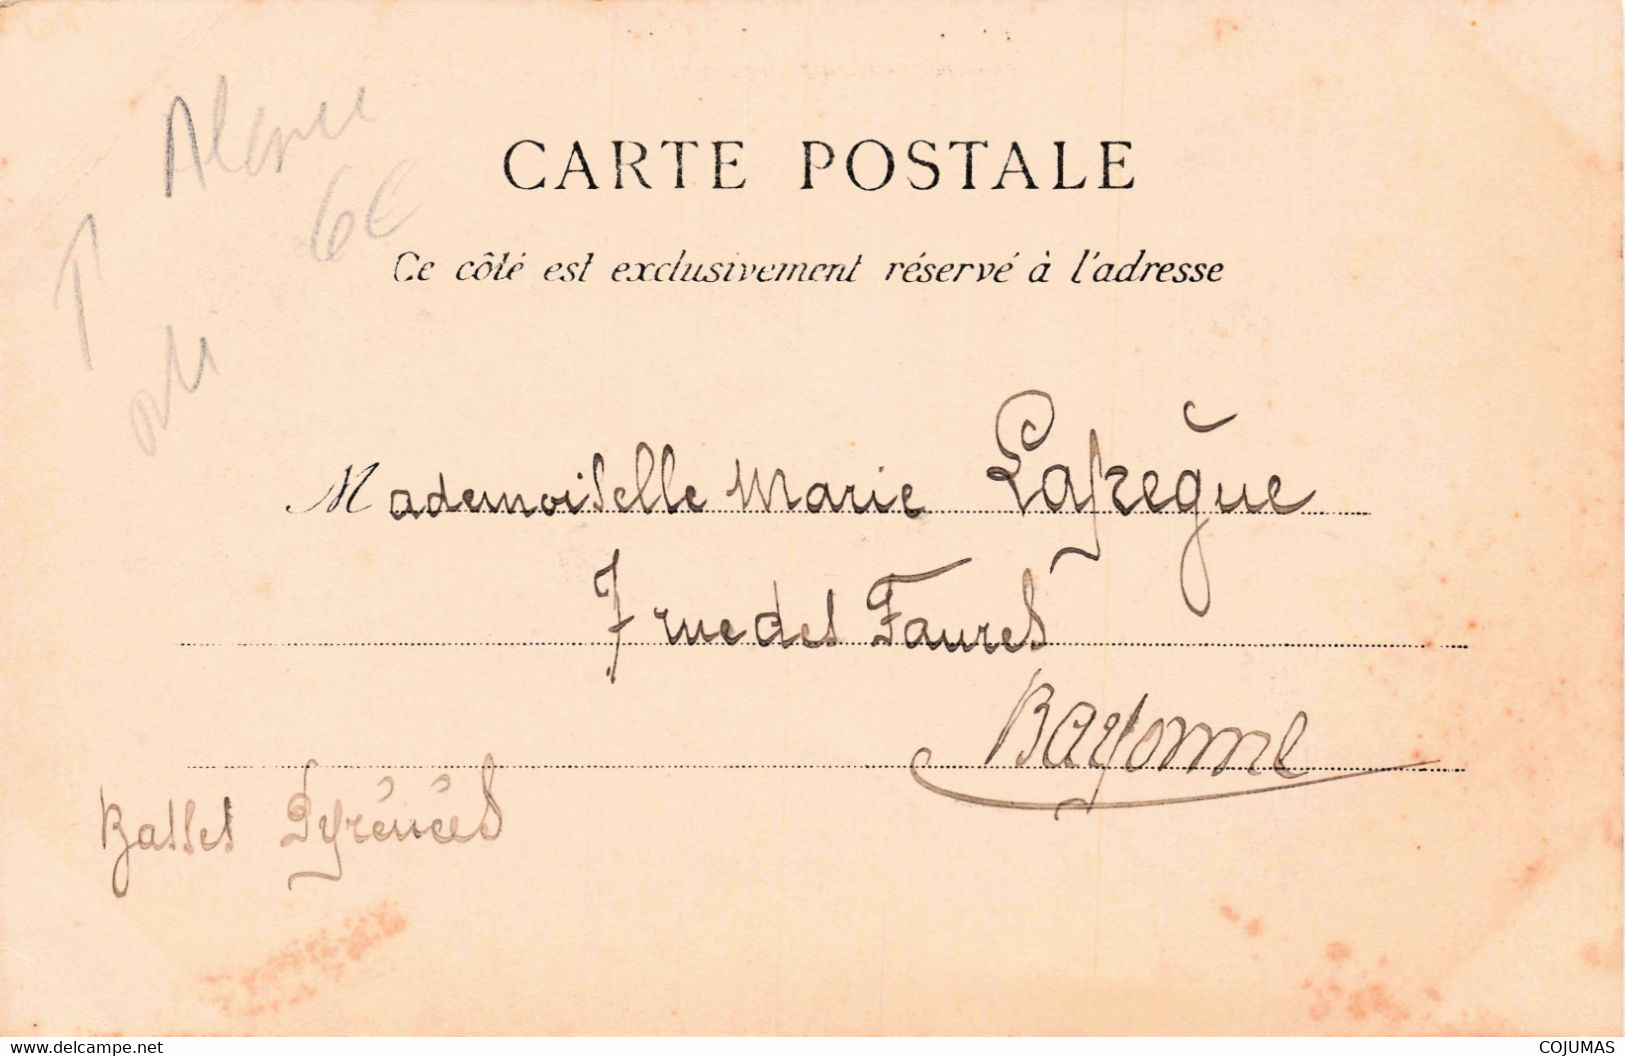 6€
CARTE POSTALE
Ce côté est exclusivement réservé à l'adresse
Mademoiselle Marie Lapègue
7 rue des Faures
Bayonne
Basses Pyrénées
www.delcampe.net
COJUMAS